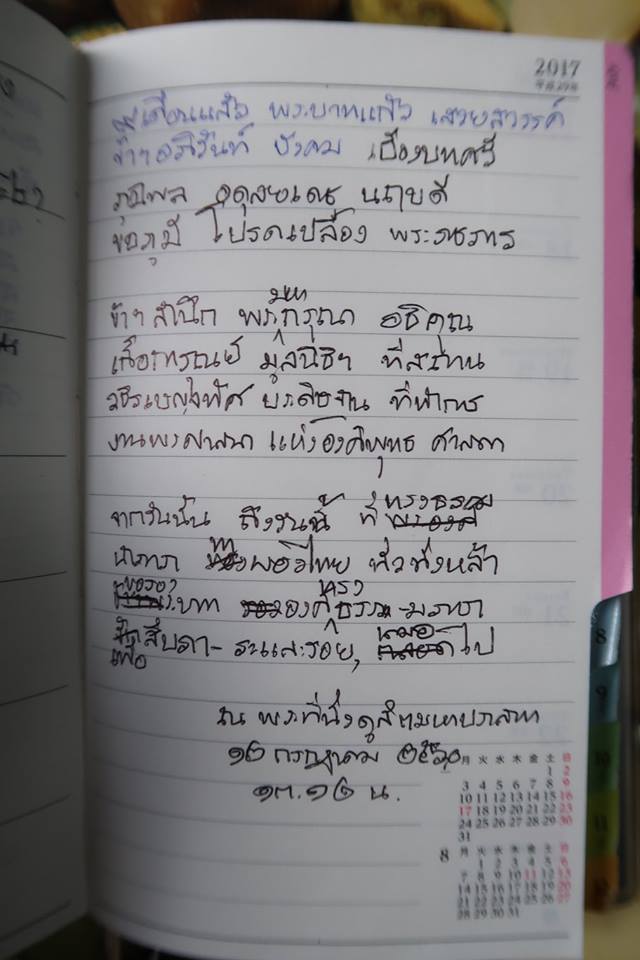 2017
เดือนแล้ว พระบาทแก้ว เสวยสวรรค์
ข้าฯอภิวันท์ บังคม เบื้องบทศรี
ภูมิพล อดุลยเดช นฤบดี
ขอภูมี โปรดเปลื้อง พระราชภาร
ข้าฯสำนึก พระมหากรุณา อธิคุณ
เกื้อการุณย์ มูลนิธิฯ ที่สถาน
งานพระศาสนา แห่งองค์พุทธ ศาสดา
จากวันนั้น ถึงวันนี้ ที่ทรงธรรม
พสกไทย ทั่วทั้งหล้า
ขอรองบาท องค์ทรงธรรม-มราชา
เพื่อสืบสา- ระและรอย, เสมอไป
ณ พระที่นั่งดุสิตมหาปราสาท
๑๒ กรกฎาคม ๒๕๖๐
๑๓.๑๒ น.
月 火 水 木 金 土 日
1 2
3 4 5 6 7 8 9
10 11 12 13 14 15 16
17 18 19 20 21 22 23
24 25 26 27 28 29 30
31
8 月 火 水 木 金 土 日
1 2 3 4 5 6
7 8 9 10 11 12 13
14 15 16 17 18 19 20
21 22 23 24 25 26 27
28 29 30 31
8
9
10
11